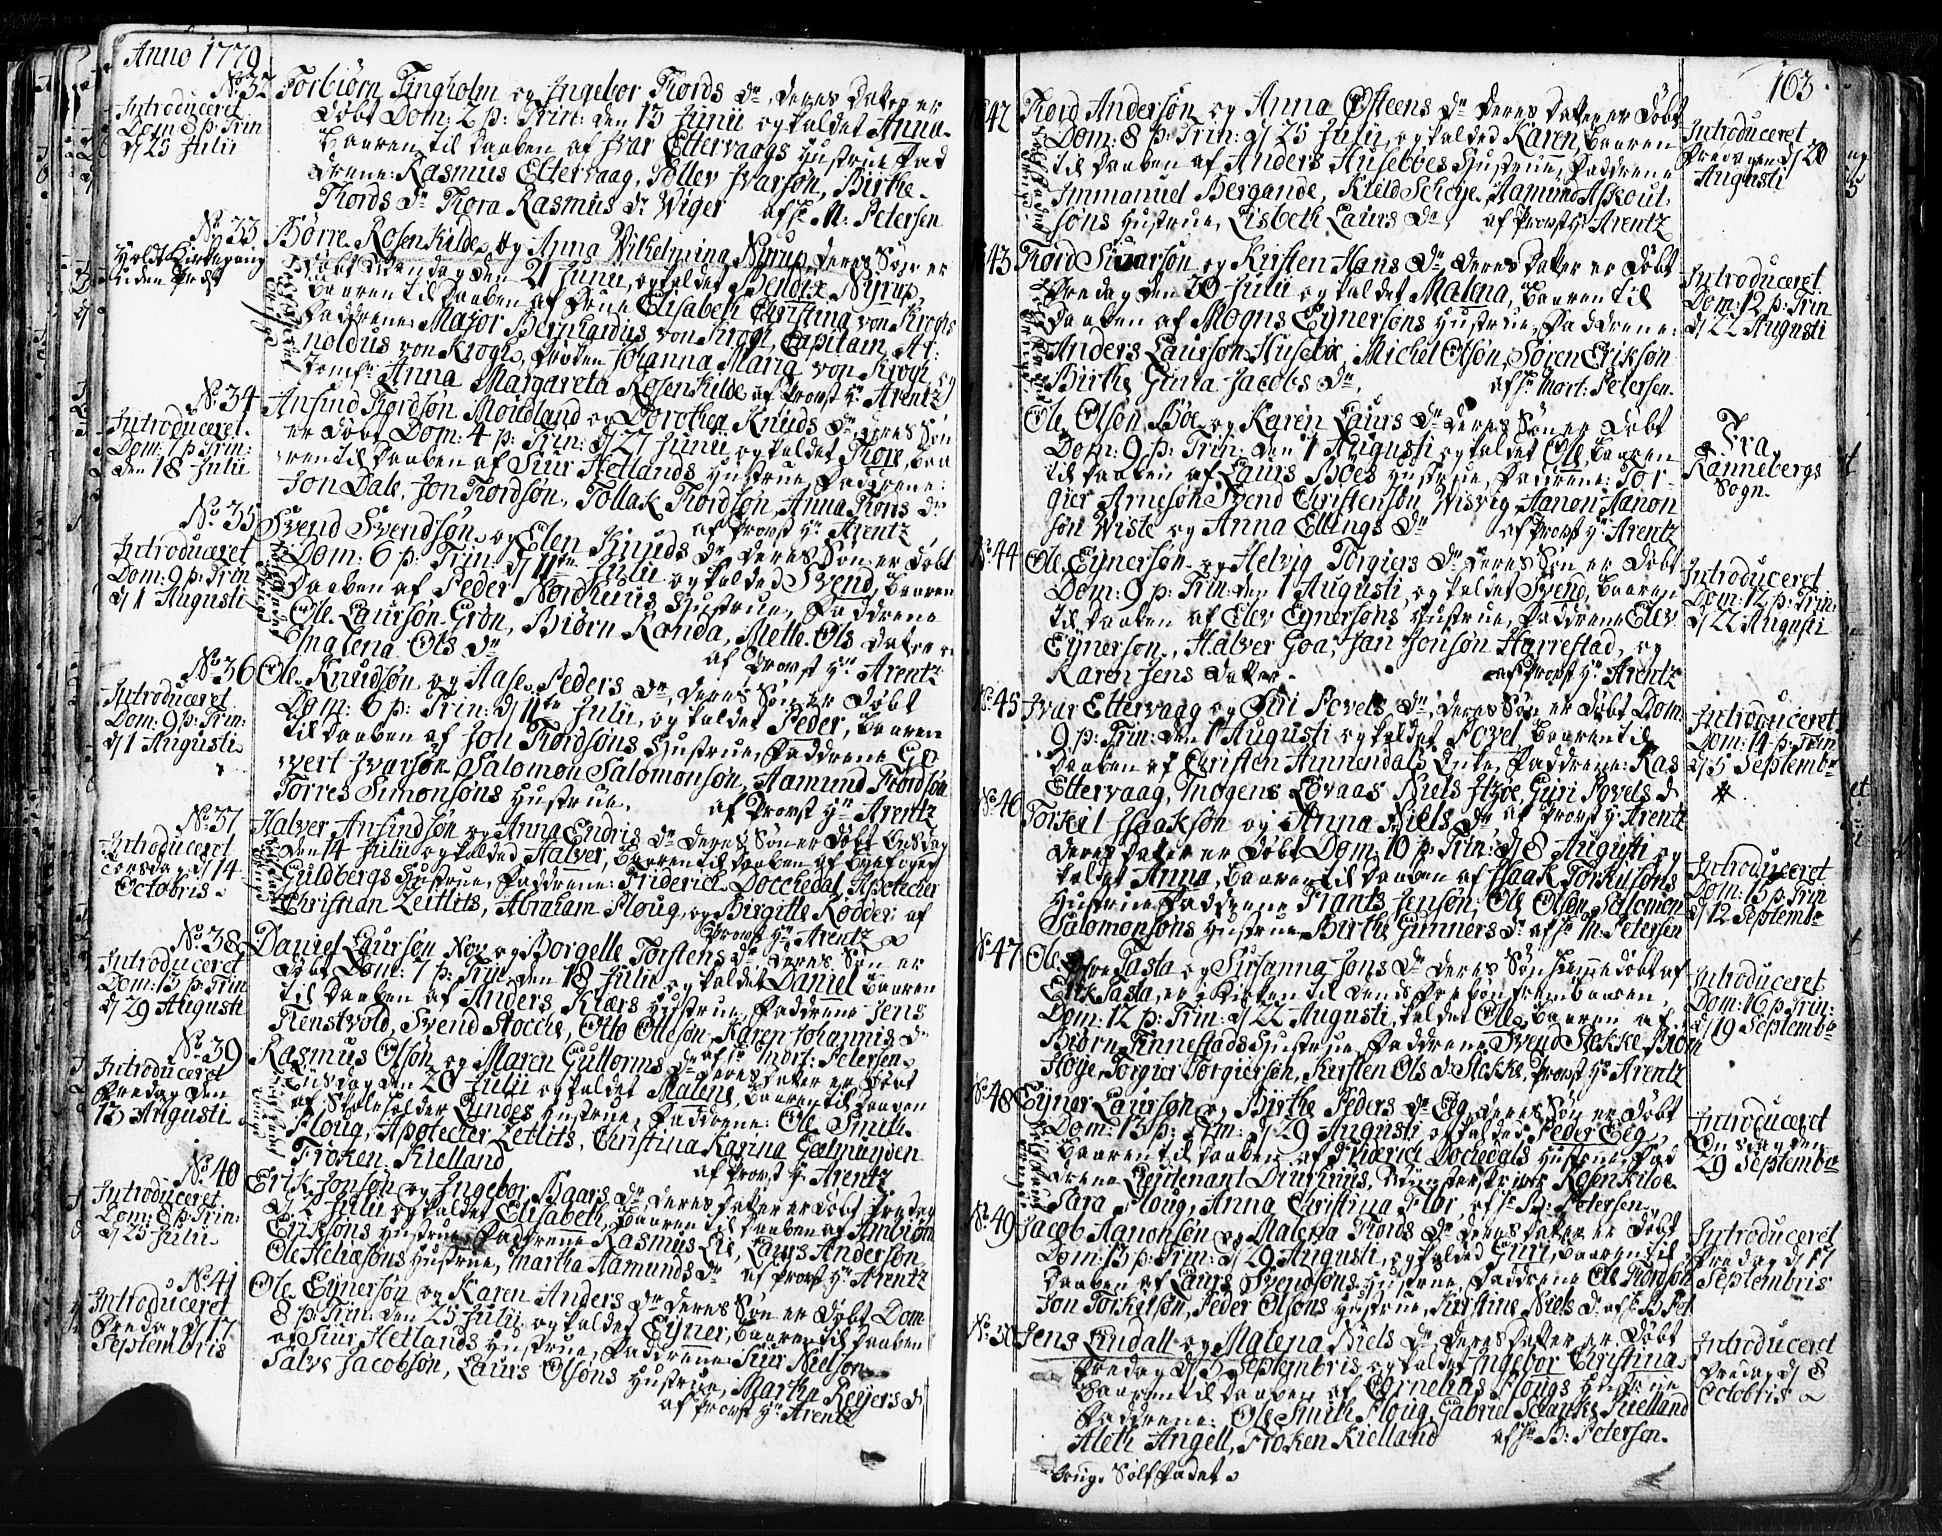 Anno 1779
No. 32
Introduceret
Dom: 8 p: Trin
d/ 25 Julii
Torbiörn Tingholm og Ingebor Tiords Dr, deres Datter er
Döbt Dom: 2 p: Trin: den 13 Junii og kaldet Anna
baaren til Daaben af Ivar Eltervaags Hustrue, Fad
drene: Rasmus Eltervaag, Tollev Ivarsön, Birthe
Tiords Dr Thora Rasmus Dr Wiger af Hr M: Petersen
No. 33
Holdt Kirkegang
uden Præst
Börre Rosenkilde og Anna Wilhelmina Nyrup deres Sön er
döbt Mandag den 21 Junii, og kaldet Bendix Nyrup,
baaren til Daaben af Frue Elisabeth Christina von Kroghs
Faddrene: Major Bernhardus von Krogh, Capitain Ar:
noldus von Krogh, Fröken Johanna Maria von Krogh
Jomfr Anna Margareta Rosenkilde af Provst Hr Arentz
No. 34
Introduceret
Dom: 7 p: Trin:
den 18 Julii
Ansind Tiordsön Moudland og Dorothea Knuds Dr deres Sön
er döbt Dom: 4 p: Trin: d/ 27 Junii og kaldet Tiore, baa
ren til Daaben af Siur Hetlands Hustrue, Faddrene:
Jon Dale, Jon Tiordsön, Tollak Tiordsön, Anna Tiords Dr
af Provst Hr Arentz
No. 35
Introduceret
Dom: 9 p: Trin
d/ 1 Augusti
Svend Svendsön og Elen Knuds Dr deres Sön er döbt
Dom: 6 p: Trin: d/ 11te Julii og kalded Svend, baaren
Daaben af Peder Nordhuus Hustrue, Faddrene
Ole Laursön Grön, Biörn Randa, Mette Ols Datter
Malena Ols Dr
af Provst Hr Arentz
No. 36
Introduceret
Dom: 9 p: Trin:
d/ 1 Augusti
Ole Knudsön og Aase Peders Dr, deres Sön er Döbt
Dom: 6 p: Trin: d/ 11te Julii, og kaldet Peder, baaren
til Daaben af Jon Tiordsöns Hustrue, Faddrene
Ivarsön Salomon Salomonsön, Aamund Tiordsön
Torres Simonsöns Hustrue. af Provst Hr Arentz
No. 37
Introduceret
Torsdag d/ 14
Octobris
Halver Ansindsön og Anna Endris Dr deres Sön er Döbt Onsdag
den 14 Julii og kaldet Halver, baaren til Daaben af Byefoged
Guldbergs Hustrue, Faddrene: Friderich Docchedal, Apotecher
Christian Zeitlits, Abraham Ploug, og Birgitte Rödder: af
Provst Hr Arentz
No. 38
Introduceret
Dom: 13 p: Trin
d/ 29 Augusti
Daniel Laursön Nox og Borgelle Torstens Dr deres Sön er
döbt Dom: 7 p: Trin: den 18 Julii og kaldet Daniel baaren
til Daaben af Anders Kiærs Hustrue, Faddrene Jens
Tienstvold, Svend Stocche, Otto Ottesön, Karen Johannis Dr
af Hr Mort: Petersen
No. 39
Introduceret
Fredag den
13 Augusti
Rasmus Olsön og Maren Guttorms Dr deres Datter er Döbt
Tiisdag den 20 Julii og kaldet Malene, baaren til Daaben
af Skoleholder Lundes Hustrue, Faddrene: Ole Smith
Ploug, Apotecher Zetlits, Christina Karina Geelmuyden
Fröken Kielland af Provst Hr Arentz
No. 40
Introduceret
Dom: 8 p: Trin:
d/ 25 Julii
Erik Jonsön og Ingebor Baars Dr deres Datter er döbt Fredag
d/ 2 Julii og kaldet Elisabeth, baaren til Daaben af Ambiörn
Eriksöns Hustrue, Faddrene Rasmus Lie, Laurs Andersön
Ole Heliasöns Hustrue, Martha Aamunds Dr af Provst Hr Arentz
No. 41
Introduceret
Fredag d/ 17
Septembris
Ole Eynersön og Karen Anders Dr deres Sön er Döbt Dom
8 p: Trin: den 25 Julii og kaldet Eyner, baaren til Daaben
af Siur Hetlands Hustrue, Faddrene: Siur Nielsön
Salve Jacobsön, Laurs Olsöns Hustrue, Martha Reyers Dr
af Provst Hr Arentz
163
42
Tiord Andersön og Anna Östeens Dr deres Datter er döbt
Dom: 8 p: Trin: d/ 25 Julii, og kaldet Karen, baaren
til Daaben af Anders Huseböes Hustrue, Faddrene
Immanuel Bergande, Kield Aamund Askout
söns Hustrue, Lisbeth Laurs Dr, af Provst Hr Arentz
Introduceret
Fredagen d/ 20
Augusti
43
Tiord Siversön og Kirsten Hans Dr deres Datter er döbt
Fredag den 30 Julii og kaldet Malena, baaren til
Daaben af Mogns Eynersöns Hustrue, Faddrene:
Anders Laursön Huseböe, Michel Olsön, Sören Eriksön
Birthe Gina Jacobs Dr. af Hr Mort: Petersen
Introduceret
Dom: 12 p: Trin
d/ 22 Augusti
Ole Olsön Böe og Karen Laurs Dr deres Sön er Döbt
Dom: 9 p: Trin: den 1 Augusti og kaldet Ole, baaren
til Daaben af Laurs Böes Hustrue, Faddrene: Tor-
gier Arnesön Svend Christensön Wisvig, Aanon Aanon
sön Wiste og Anna Ellings Dr af Provst Hr Arentz
Fra
Rannebergs
Sogn
No. 44
Ole Eynersön og Helvig Torgiers Dr deres Sön er Döbt
Dom: 9 p: Trin: den 1 Augusti, og kaldet Svend, baaren
til Daaben af Elev Eynersöns Hustrue, Faddrene Elev
Eynersön, Halver Goa, Jan Jonsön Harrestad, og
Karen Jens Datter. af Provst Hr Arentz
Introduceret
Dom: 12 p: Trin:
d/ 22 Augusti
No. 45
Ivar Eltervaag og Siri Povels Dr, deres Sön er döbt Dom
9 p: Trin: den 1 Augusti og kaldet Povel baaren til
Daaben af Christen Hinnendals Enke, Faddrene: Ras
Eltervaag, Mogens Lövaas Niels Giöe, Guri Povels D
af Provst Hr Arentz
Introduceret
Dom: 14 p: Trin
d/ 5 Septembr
No. 46
Torkel Isaaksön og Anna Niels Dr
deres Datter er döbt Dom: 10 p: Trin: d/ 8 Augusti og
kaldet Anna, baaren til Daaben af Isaak Torkilsöns
Hustrue, Faddrene Frants Jensön, Ole Olsön, Salomon
Salomonsöns Hustrue, Birthe Gunners Dr af Hr M: Petersen
Introduceret
Dom: 15 p: Trin
d/ 12 Septembr
No. 47
Ole Tasta og Susanna Jons Dr deres Sön hiemmedöbt af
Erik Tasta, er i Kirken til Bön frembaaren,
Dom: 12 p: Trin: d/ 22 Augusti, kaldet Ole, baaren af
Biörn Finnestads Hustrue, Faddrene Svend Stokke, Biörn
Höye, Torgier Torgiersön, Kirsten Ols D Stokke, Provst Hr Arentz
Introduceret
Dom: 16 p: Trin:
d/ 19 Septembr
No. 48
Eyner Laursön og Birthe Peders Dr Eeg, deres Sön er döbt
Dom: 13 p: Trin: d/ 29 Augusti og kaldet Peder Eeg
baaren til Daaben af Friderich Docchedals Hustrue, Fad
drene Lieutenant Diurhuus, Mönsterskriver Rosenkilde
Sara Ploug, Anna Christina Pilör, af Hr B: Petersen
Introduceret
Onsdag den
29 Septembr
No. 49
Jacob Aanonsön og Malena Tiords Dr deres Datter er Döbt
Dom: 13 p: Trin: d/ 29 Augusti, og kaldet Guri, baaren til
Daaben af Laurs Svendsöns Hustrue, Faddrene Ole Tiordsön
Jon Torkelsön, Peder Olsöns Hustrue, Kirstine Niels D: af Hr B: Pet
Introduceret
Fredag d/ 17
Septembris
No. 50
Jens Lindall og Malena Niels Dr, deres Datter er Döbt
Fredag d/ 3 Septembris og kaldet Ingebor Christina
baaren til Daaben af Cornelius Plougs Hustrue
Faddrene: Ole Smith Ploug, Gabriel Schanke Kielland
Aleth Angell, Fröken Kielland af Hr B: Petersen.
Introduceret
Fredag d/ 8
Octobris